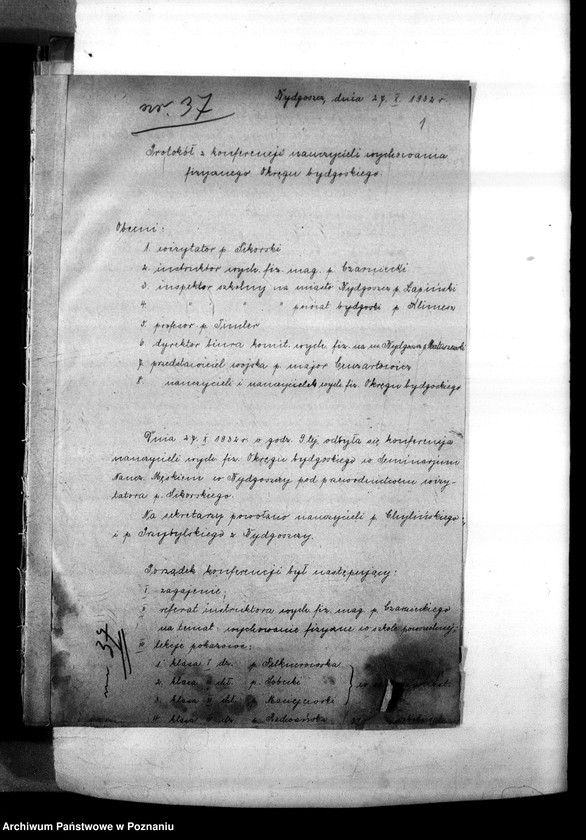 nr. 37
Bydgoszcz, dnia 27. X. 1932 r.
1
Protokół z konferencji nauczycieli wychowania
fizycznego Okręgu bydgoskiego.
Obecni:
1. wizytator p. Sikorski
2. instruktor wych. fiz. mag. p. Czarnecki
3. inspektor szkolny na miasto Bydgoszcz p. Łapiński
4. " " " powiat bydgoski p. Klimesz
5. profesor p.
6. dyrektor biura komit. wych. fiz. na m. Bydgoszcz p. Matuszewski
7. przedstawiciel wojska p. major
8. nauczyciele i nauczycielek wych. fiz. Okręgu bydgoskiego
Dnia 27. X 1932 r o godz. 9 tej odbyła się konferencja
nauczycieli wych. fiz. Okręgu bydgoskiego w Seminarjum
Naucz. Męskiem w Bydgoszczy pod przewodnictwem wizy-
tatora p. Sikorskiego.
Na sekretarzy powołano nauczycieli p. Chylińskiego
i p. Przybylskiego z Bydgoszczy.
Porządek konferencji był następujący:
I. zagajenie;
II referat instruktora wych. fiz. mag. p. Czarneckiego
na temat: wychowanie fizyczne w szkole powszechnej;
III lekcje pokazowe:
1. klasa I dz. p.
2. klasa II dł. p. Sobecki
3. klasa III dł. p. Maciejewski
4. klasa
nr 37
Archiwum Państwowe w Poznaniu